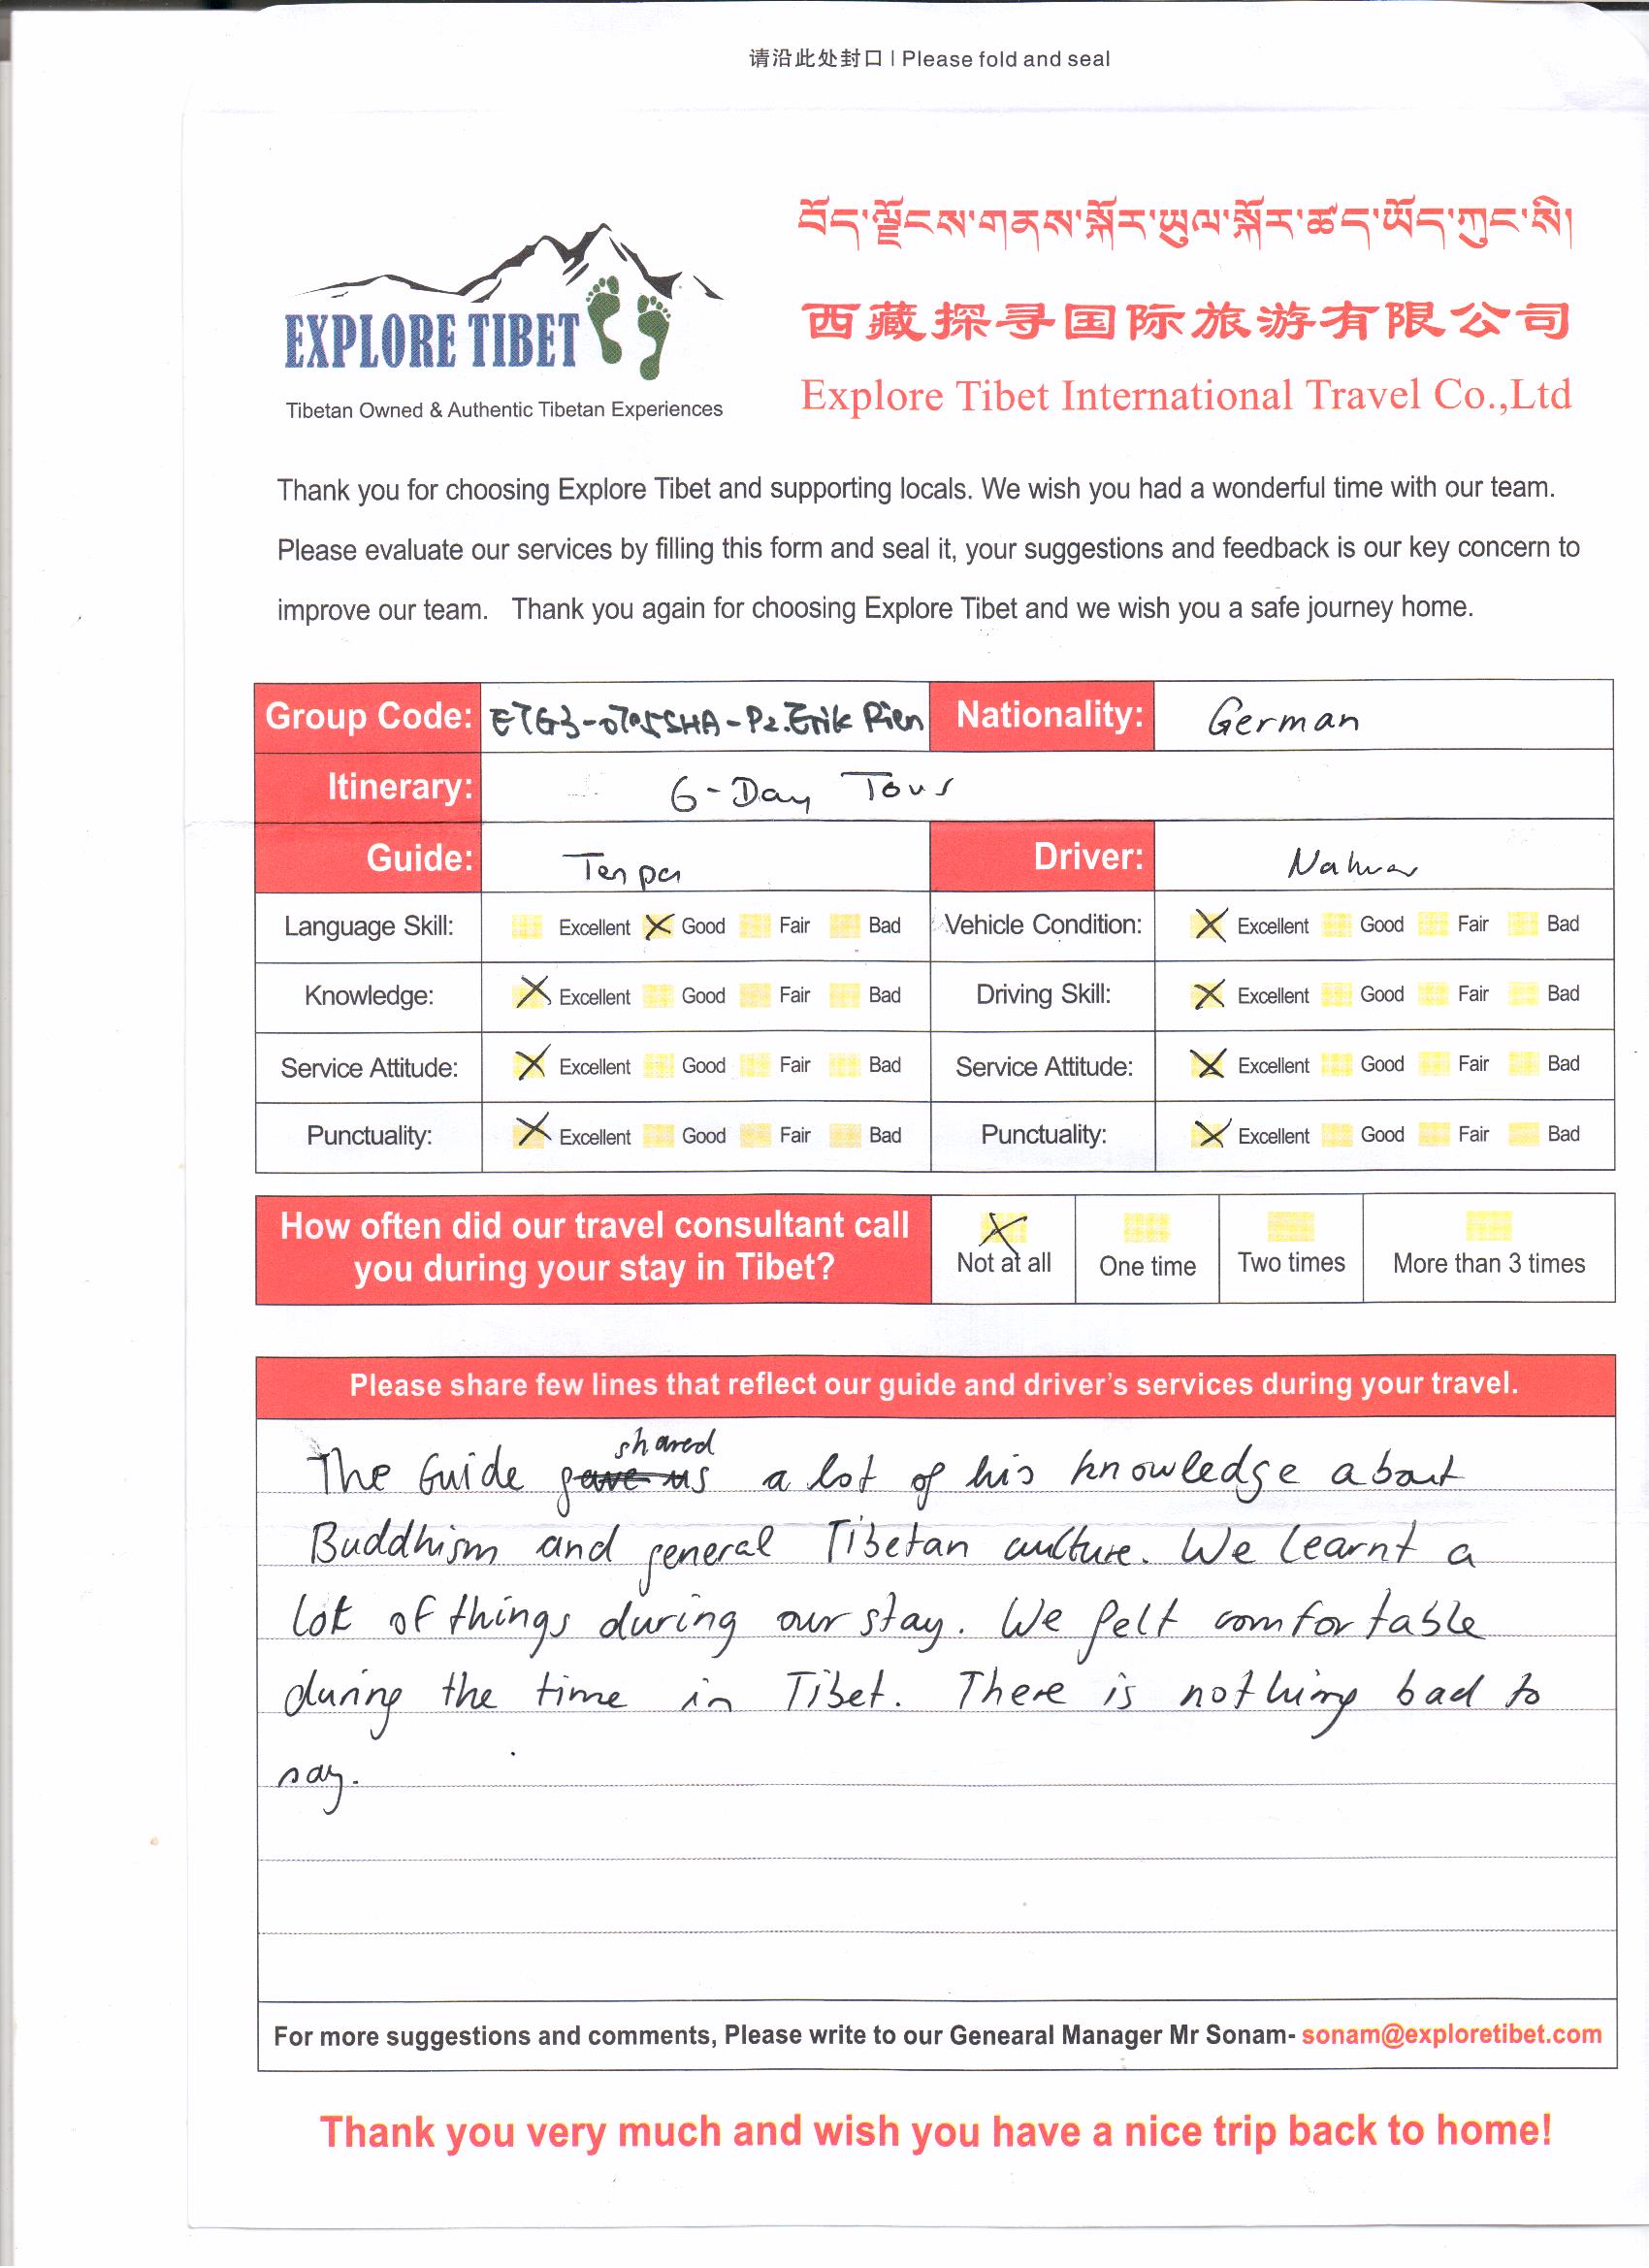 请沿此处封口 | Please fold and seal
བོད་ལྗོངས་གནས་སྐོར་ཡུལ་སྐོར་ཚད་ཡོད་ཀུང་སི།
EXPLORE TIBET
西藏探寻国际旅游有限公司
Explore Tibet International Travel Co.,Ltd
Tibetan Owned & Authentic Tibetan Experiences
Thank you for choosing Explore Tibet and supporting locals. We wish you had a wonderful time with our team.
Please evaluate our services by filling this form and seal it, your suggestions and feedback is our key concern to
improve our team. Thank you again for choosing Explore Tibet and we wish you a safe journey home.
Group Code: Erik Rien Nationality: German
Itinerary: 6-Day Tour
Guide: Tenpa Driver:
Language Skill: Excellent Good Fair Bad Vehicle Condition: Excellent Good Fair Bad
Knowledge: Excellent Good Fair Bad Driving Skill: Excellent Good Fair Bad
Service Attitude: Excellent Good Fair Bad Service Attitude: Excellent Good Fair Bad
Punctuality: Excellent Good Fair Bad Punctuality: Excellent Good Fair Bad
How often did our travel consultant call
you during your stay in Tibet?
Not at all One time Two times More than 3 times
Please share few lines that reflect our guide and driver's services during your travel.
shared
The Guide gave us a lot of his knowledge about
Buddhism and general Tibetan culture. We learnt a
lot of things during our stay. We felt comfortable
during the time in Tibet. There is nothing bad to
say.
For more suggestions and comments, Please write to our Genearal Manager Mr Sonam- sonam@exploretibet.com
Thank you very much and wish you have a nice trip back to home!